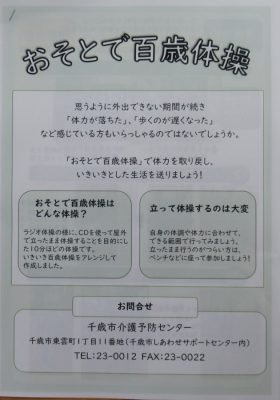 おそとで百歳体操
思うように外出できない期間が続き
「体力が落ちた」、「歩くのが遅くなった」
など感じている方もいらっしゃるのではないでしょうか。
「おそとで百歳体操」で体力を取り戻し、
いきいきとした生活を送りましょう!
おそとで百歳体操は
どんな体操?
ラジオ体操の様に、CDを使って屋外
で立ったまま体操することを目的にし
た10分ほどの体操です。
いきいき百歳体操をアレンジして
作成しました。
立って体操するのは大変
自身の体調や体力に合わせて、
できる範囲で行ってみましょう。
立ったまま行うのがつらい方は、
ベンチなどに座って参加しましょう!
お問合せ
千歳市介護予防センター
千歳市東雲町1丁目11番地(千歳市しあわせサポートセンター内)
TEL:23-0012 FAX:23-0022